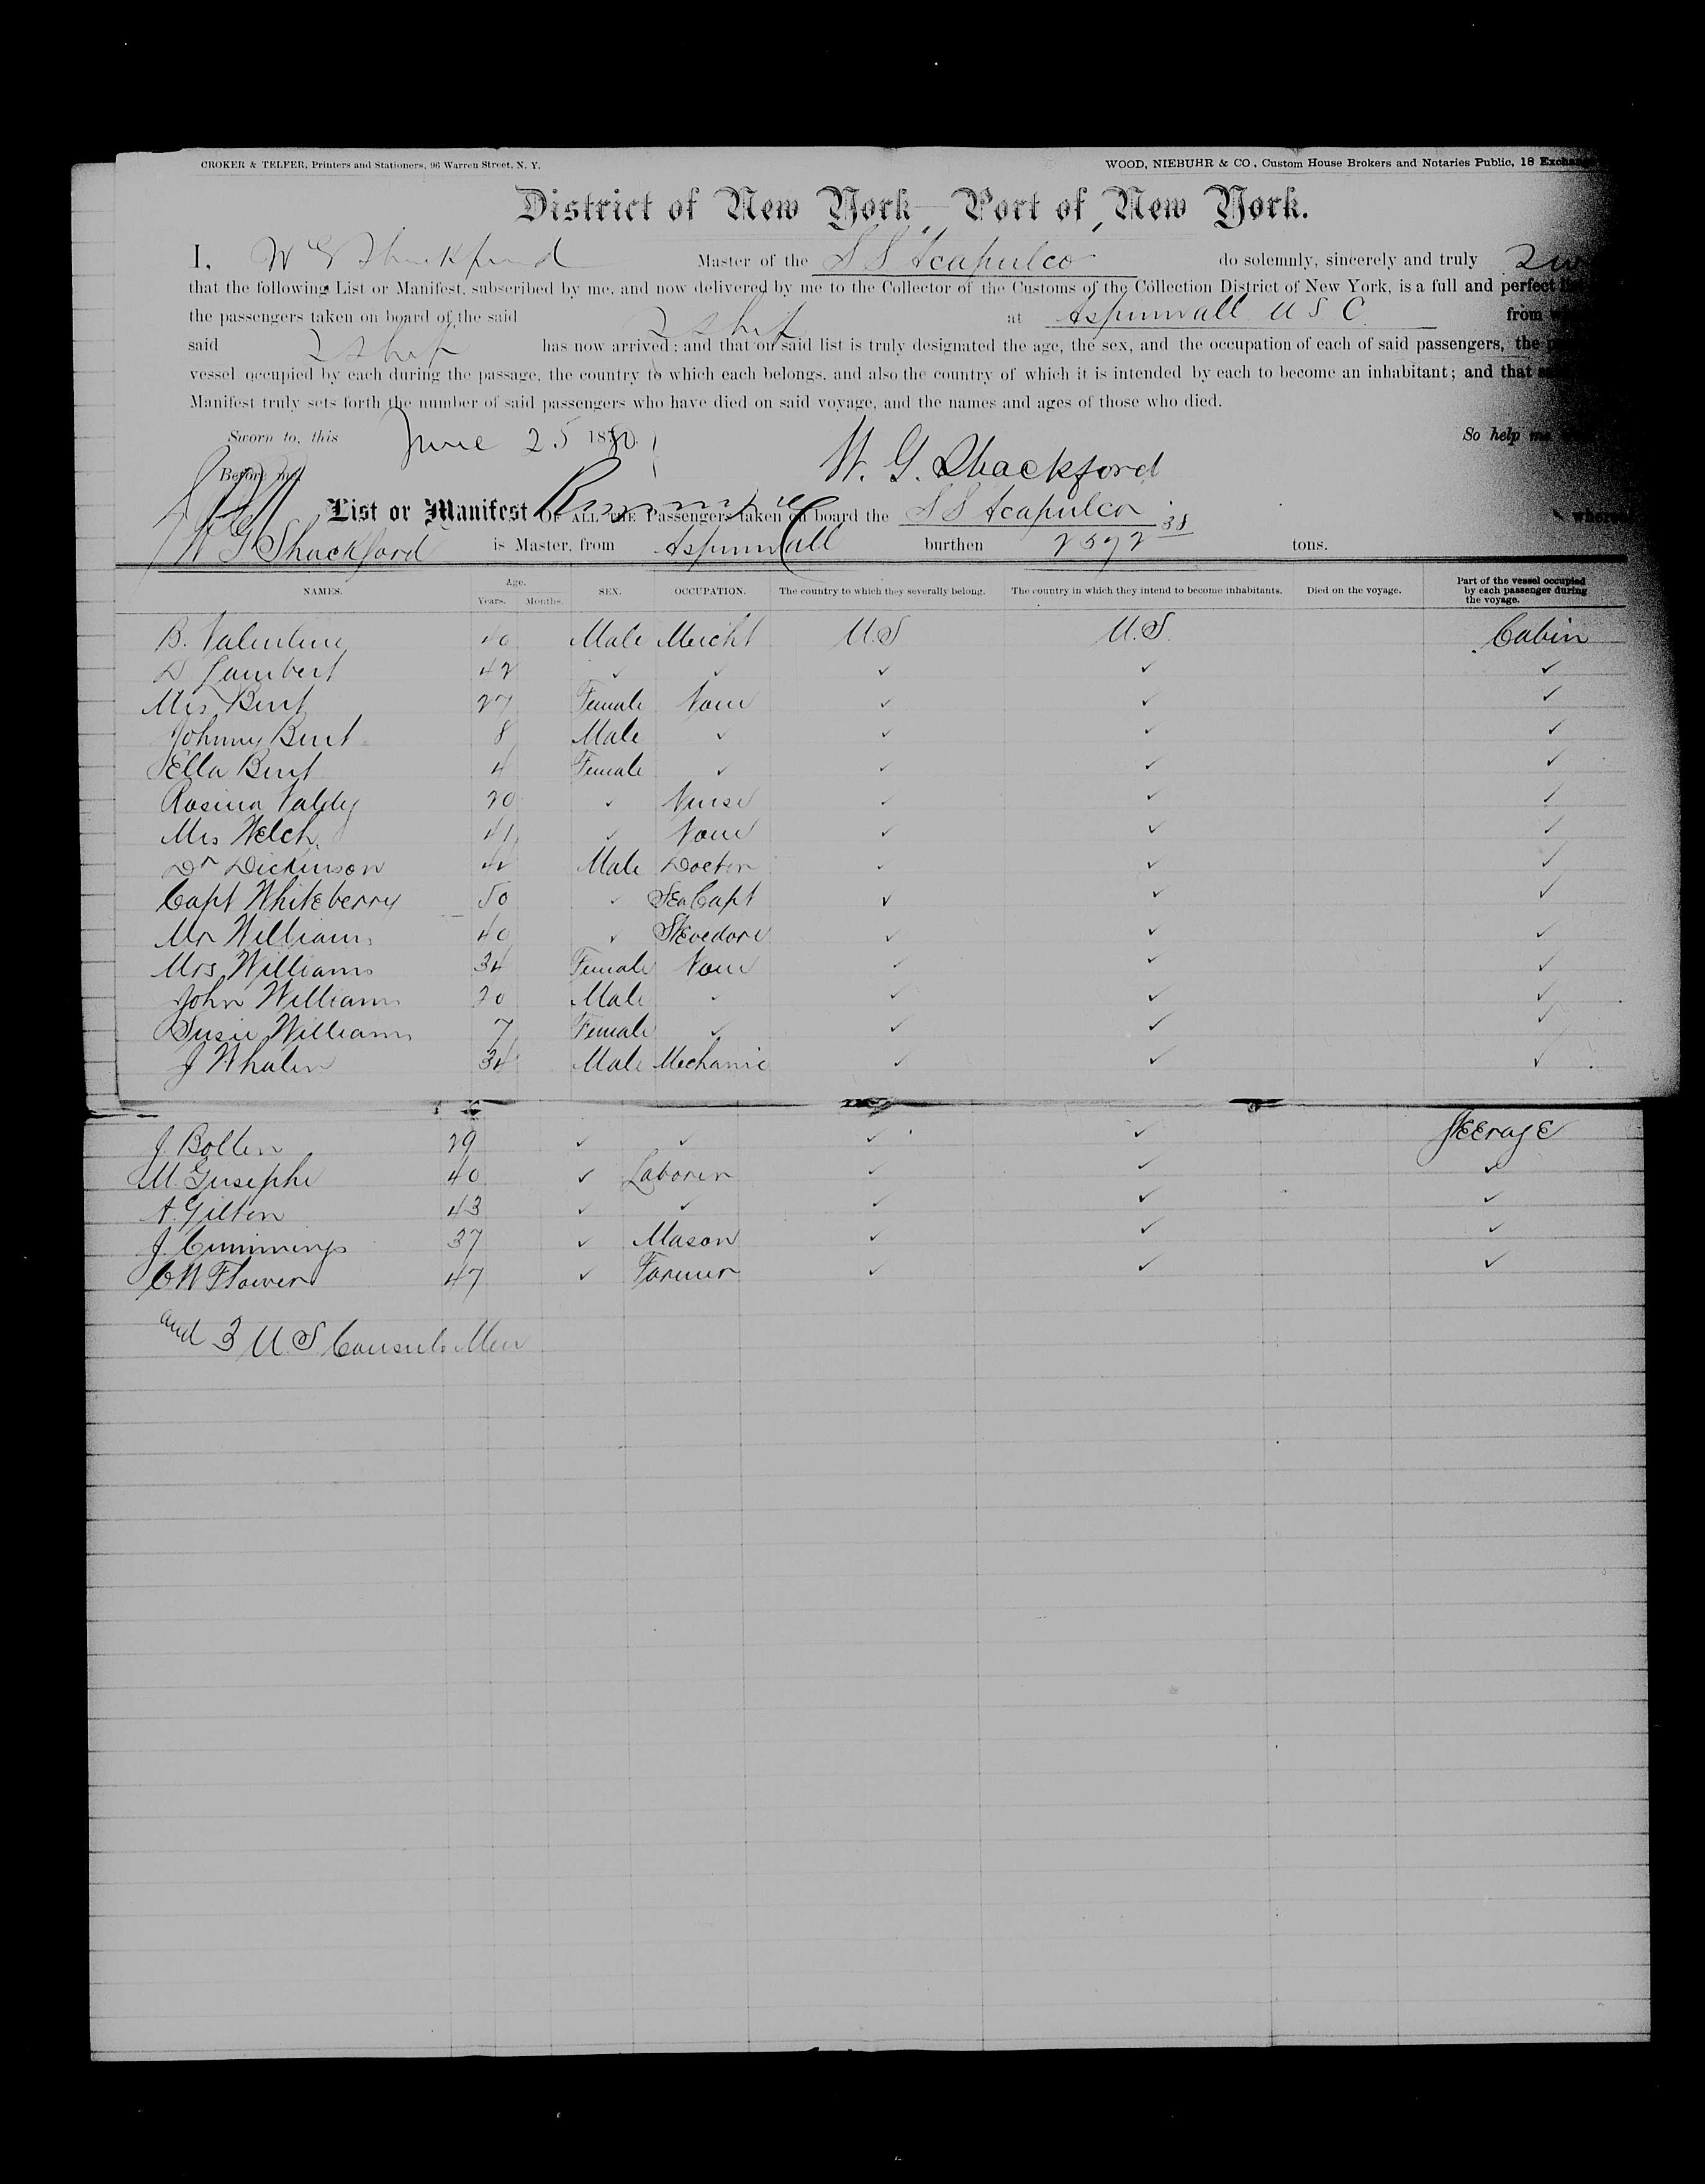 CROKER & TELFER, Printers and Stationers, 96 Warren Street, N. Y. WOOD, NIEBUHR & CO., Custom House Brokers and Notaries Public, 18
District of New York, Port of New York.
I, W G Shackford Master of the S S Acapulco do solemnly, sincerely and truly
that the following List or Manifest, subscribed by me, and now delivered by me to the Collector of the Customs of the Collection District of New York, is a full and perfect
the passengers taken on board of the said Ship at Aspinwall U S C from
said Ship has now arrived; and that on said list is truly designated the age, the sex, and the occupation of each of said passengers, the
vessel occupied by each during the passage, the country to which each belongs, and also the country of which it is intended by each to become an inhabitant; and that
Manifest truly sets forth the number of said passengers who have died on said voyage, and the names and ages of those who died.
Sworn to, this June 25 1880 So help me
Before me, W. G. Shackford
List or Manifest OF ALL THE Passengers taken on board the S S Acapulco
W G Shackford is Master, from Aspinwall burthen 2572 38 tons.
NAMES. Age. Years. Months. SEX. OCCUPATION. The country to which they severally belong. The country in which they intend to become inhabitants. Died on the voyage. Part of the vessel occupied by each passenger during the voyage.
B. Valentine 40 Male Mercht U.S U.S. Cabin
D Lambert 42 ✓ ✓ ✓ ✓ ✓
Mrs Bent 27 Female None ✓ ✓ ✓
Johnny Bent 8 Male ✓ ✓ ✓ ✓
Ella Bent 4 Female ✓ ✓ ✓ ✓
Rosina 20 ✓ Nurse ✓ ✓ ✓
Mrs Welch 41 ✓ None ✓ ✓ ✓
Dr Dickinson Male Doctor ✓ ✓ ✓
Capt Whiteberry 50 ✓ Sea Capt ✓ ✓ ✓
Mr Williams 40 ✓ Stevedore ✓ ✓ ✓
Mrs Williams 34 Female None ✓ ✓ ✓
John Williams 20 Male ✓ ✓ ✓ ✓
Susie Williams 7 Female ✓ ✓ ✓ ✓
J Whalen 34 Male Mechanic ✓ ✓ ✓
J. Bolten 29 ✓ ✓ ✓ ✓ Steerage
M. Gusephe 40 ✓ Laborer ✓ ✓ ✓
A. Gilton 43 ✓ ✓ ✓ ✓ ✓
J. Cummings 37 ✓ Mason ✓ ✓ ✓
C W Flower 47 ✓ Farmer ✓ ✓ ✓
and 3 U.S Consuls Men